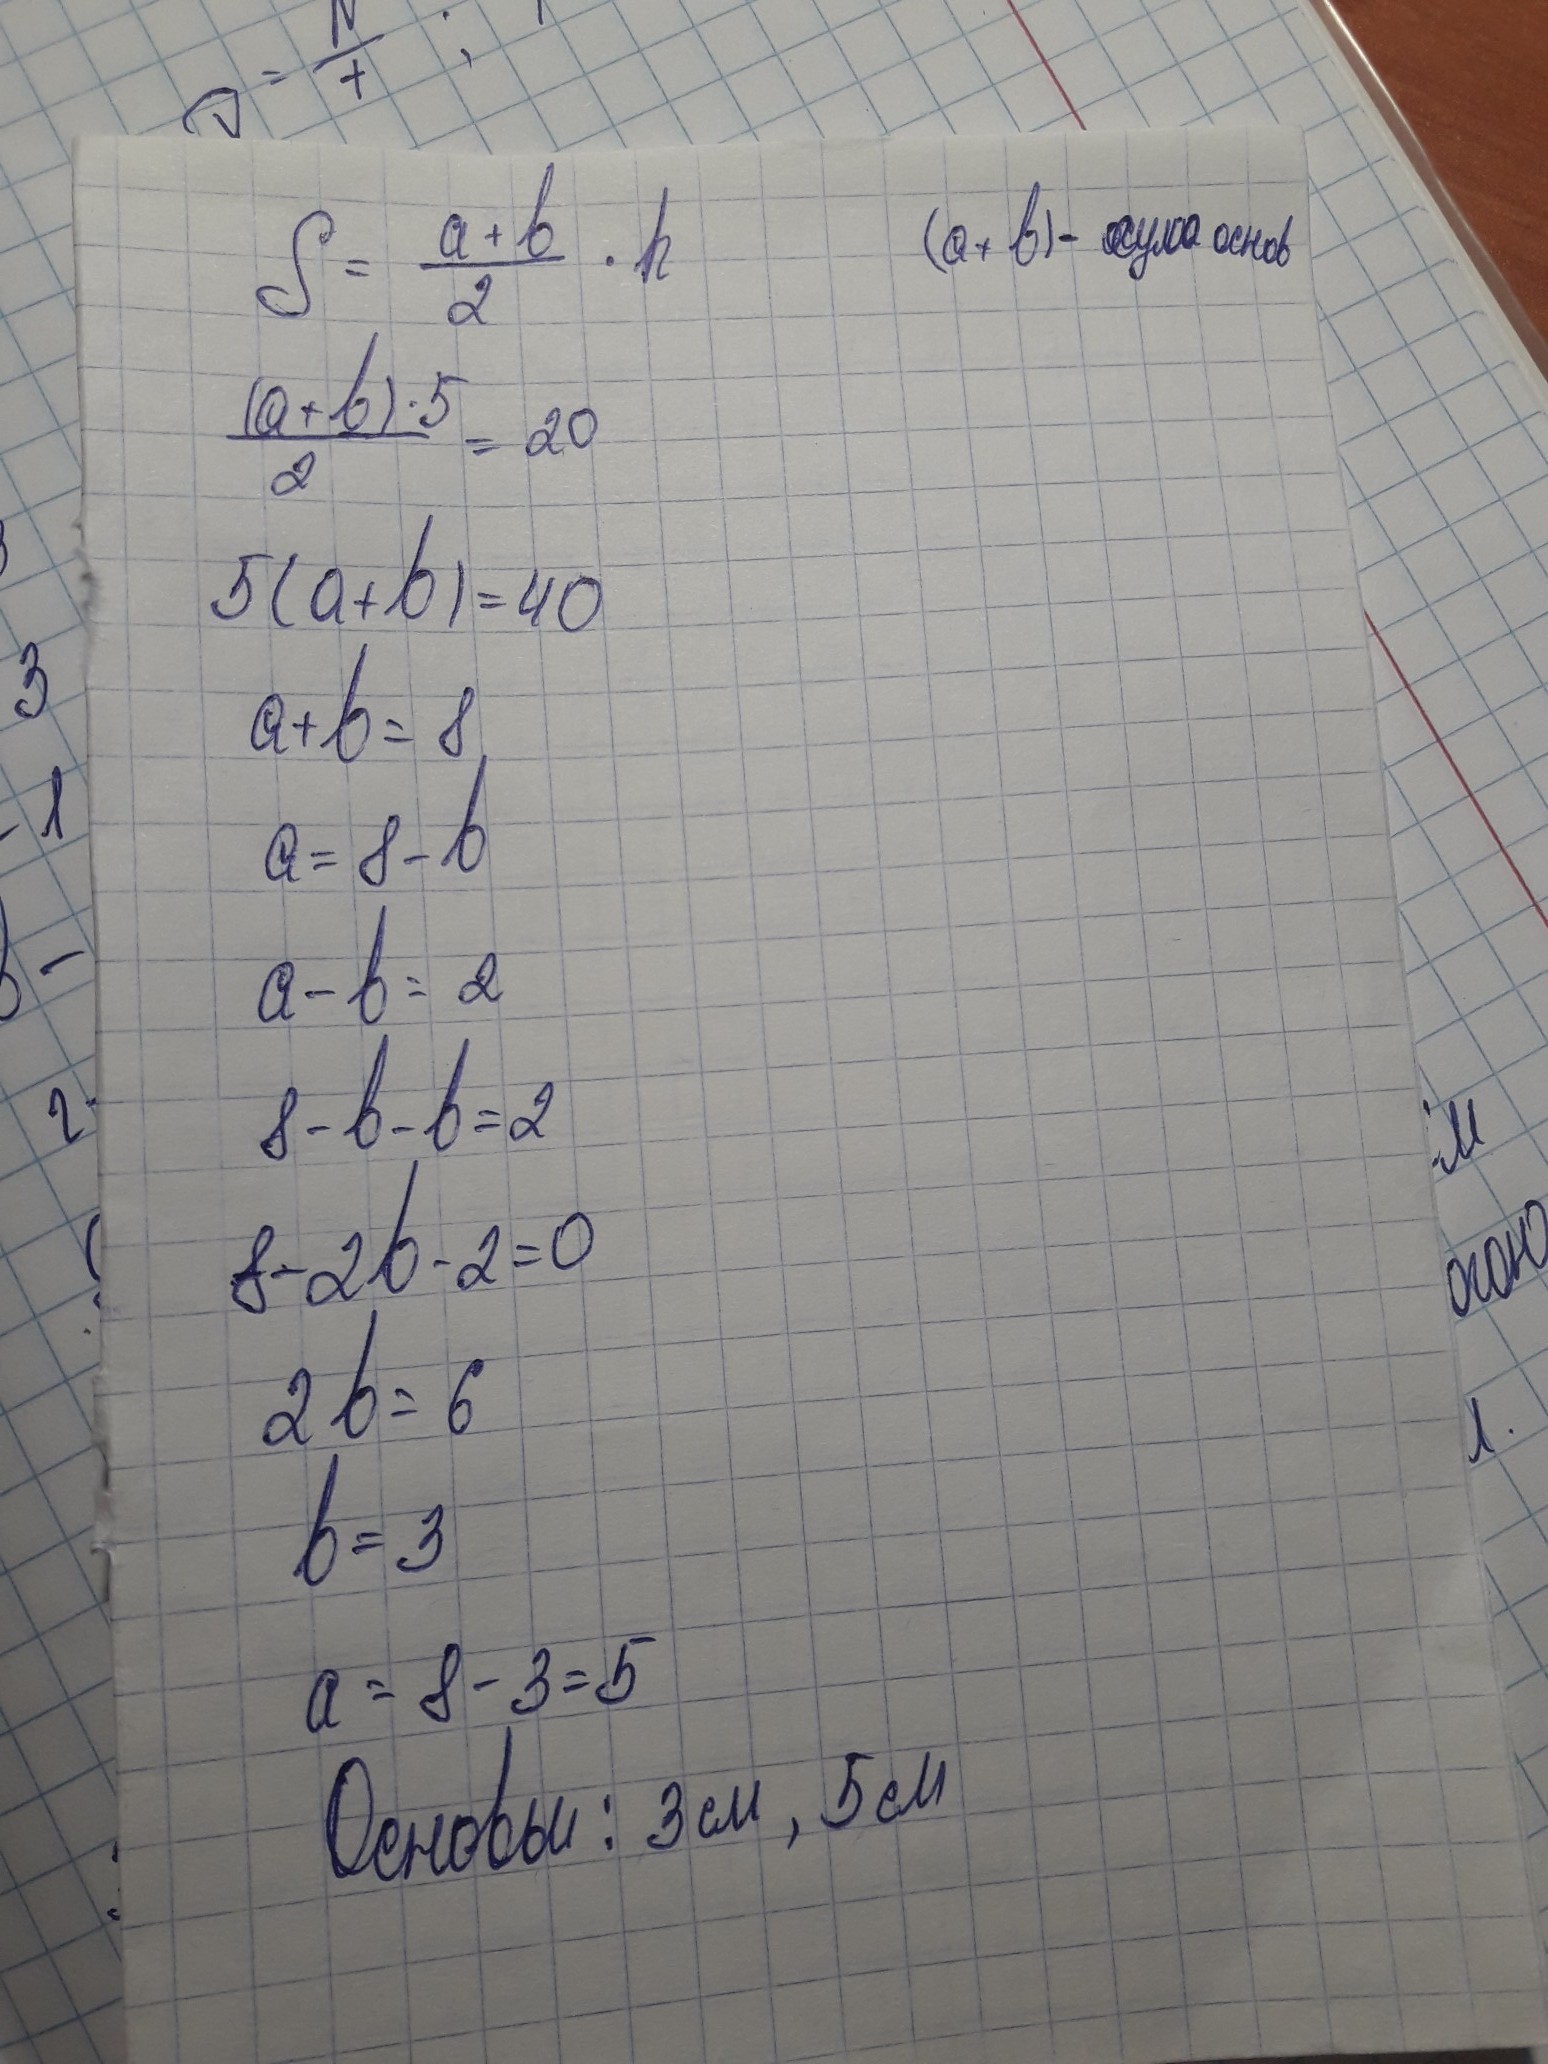 S = (a+b)/2 · h (a+b) - сума основ
(a+b)·5/2 = 20
5(a+b)=40
a+b=8
a=8-b
a-b=2
8-b-b=2
8-2b-2=0
2b=6
b=3
a=8-3=5
Основы: 3см, 5см
3
-1